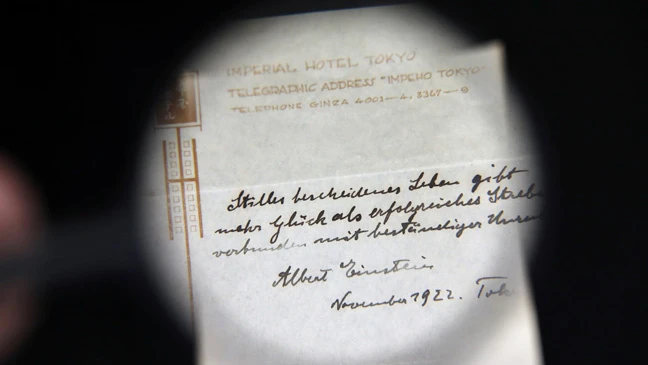 IMPERIAL HOTEL TOKYO
TELEGRAPHIC ADDRESS "IMPEHO TOKYO"
TELEPHONE GINZA 4001—4, 3367—8
Stilles bescheidenes Leben gibt
mehr Glück als erfolgreiches Strebe
verbunden mit beständiger Unru
Albert Einstein
November 1922. Tok